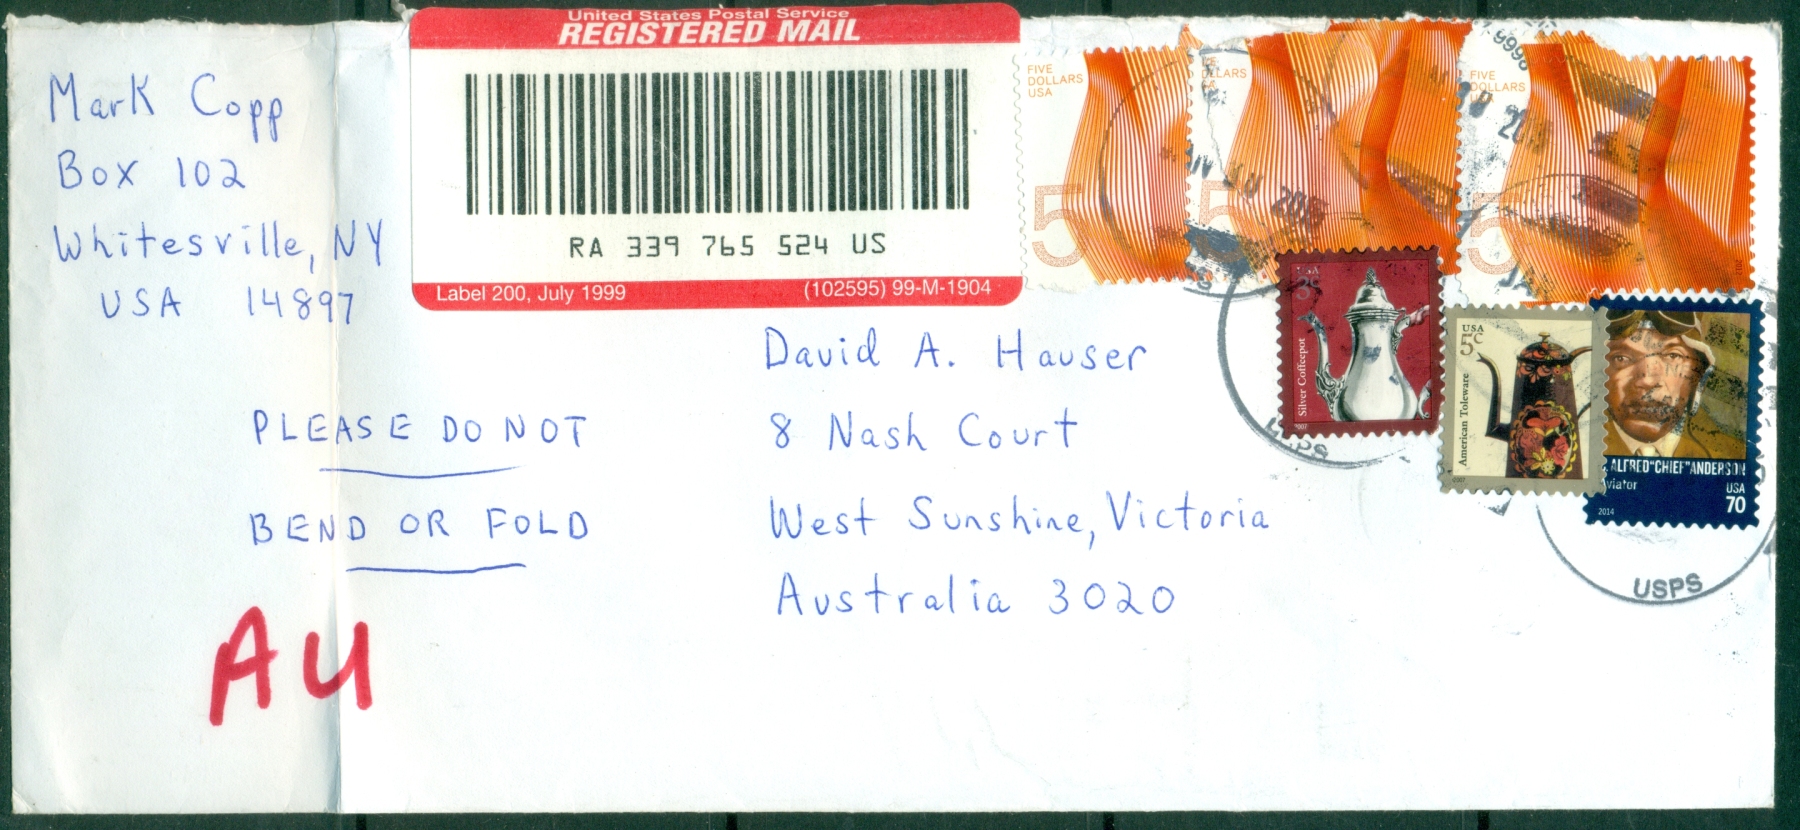 United States Postal Service
REGISTERED MAIL
RA 339 765 524 US
Label 200, July 1999 (102595) 99-M-1904
Mark Copp
Box 102
Whitesville, NY
USA 14897
PLEASE DO NOT
BEND OR FOLD
AU
David A. Hauser
8 Nash Court
West Sunshine, Victoria
Australia 3020
FIVE
DOLLARS
USA
5
5
FIVE
DOLLARS
USA
5
9998
USA
3c
Silver Coffeepot
2007
USA
5c
American Toleware
2007
ALFRED "CHIEF" ANDERSON
USA
70
2014
USPS
USPS